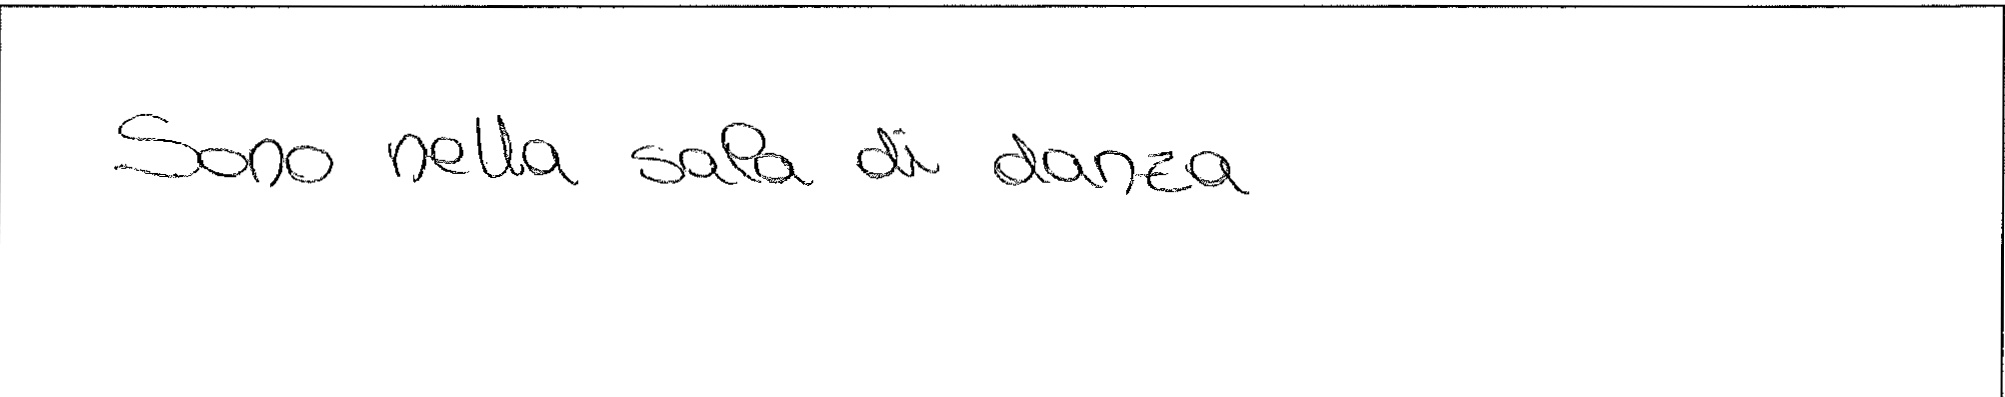 Sono nella sala di danza